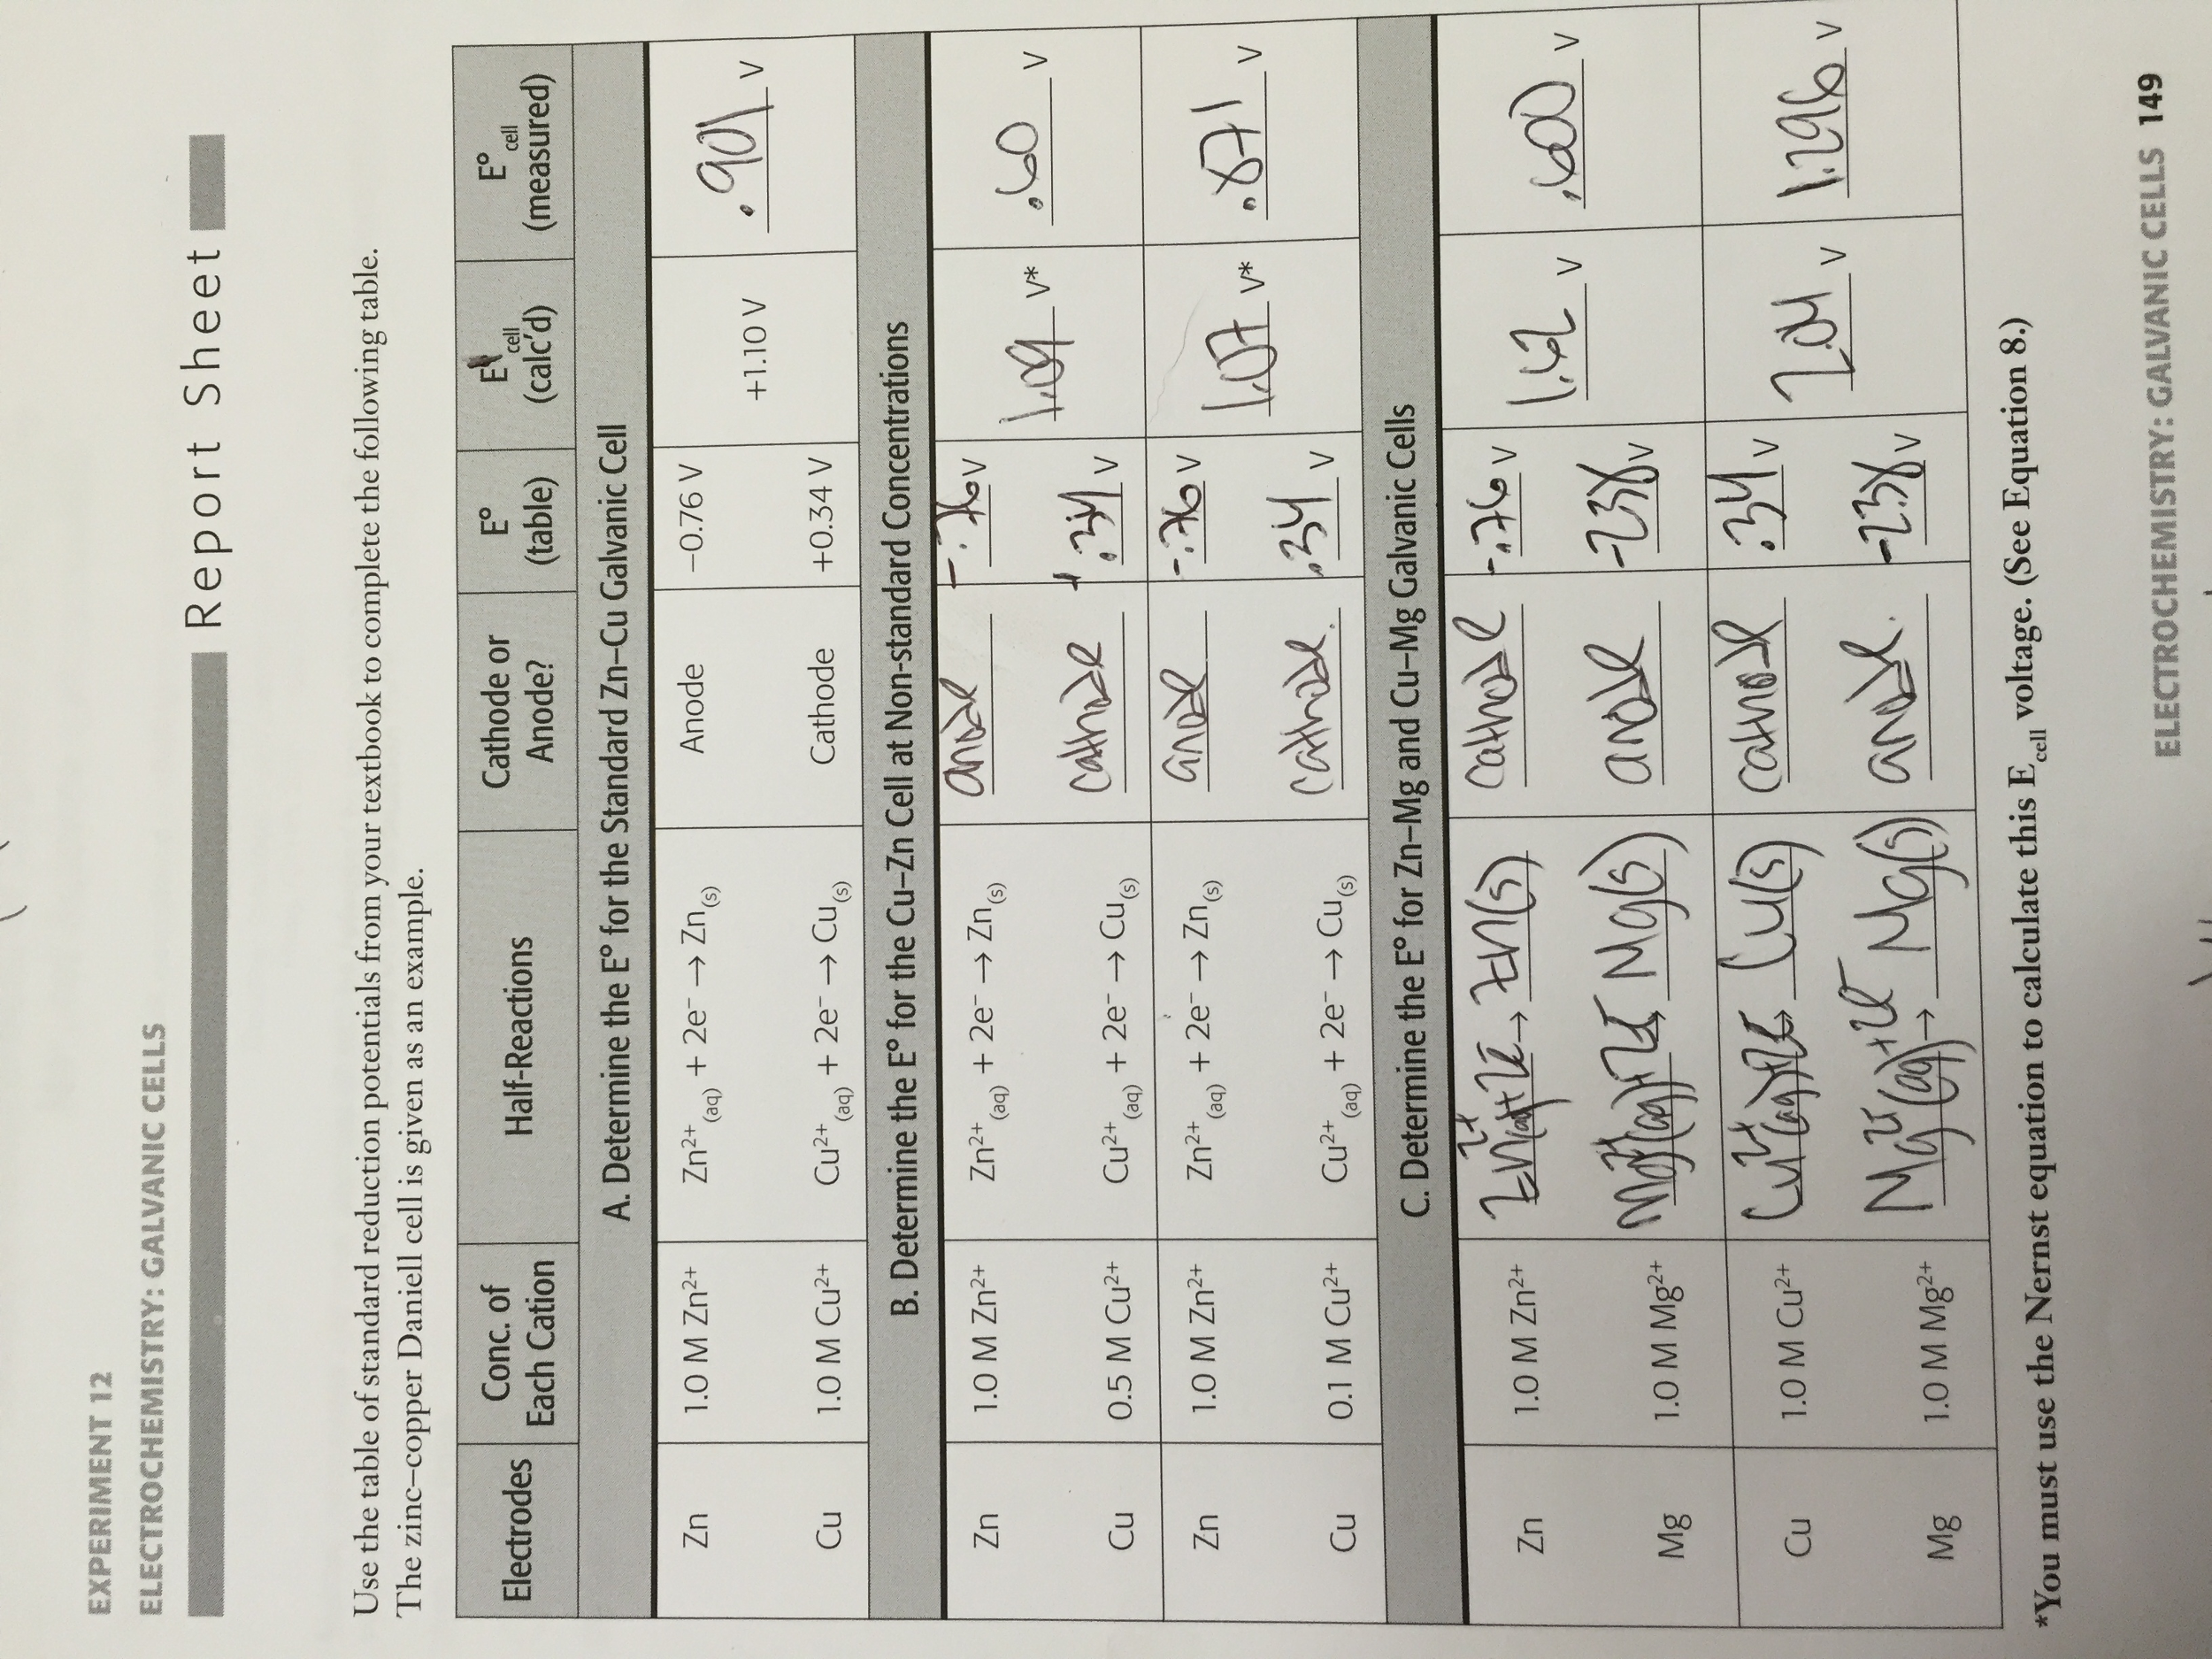 EXPERIMENT 12
ELECTROCHEMISTRY: GALVANIC CELLS
Report Sheet
Use the table of standard reduction potentials from your textbook to complete the following table.
The zinc–copper Daniell cell is given as an example.
Electrodes Conc. of Each Cation Half-Reactions Cathode or Anode? E° (table) E cell (calc'd) E° cell (measured)
A. Determine the E° for the Standard Zn–Cu Galvanic Cell
Zn 1.0 M Zn2+ Zn2+(aq) + 2e– → Zn(s) Anode –0.76 V
+1.10 V .901 V
Cu 1.0 M Cu2+ Cu2+(aq) + 2e– → Cu(s) Cathode +0.34 V
B. Determine the E° for the Cu–Zn Cell at Non-standard Concentrations
Zn 1.0 M Zn2+ Zn2+(aq) + 2e– → Zn(s) anode -.76 V
1.09 V* .60 V
Cu 0.5 M Cu2+ Cu2+(aq) + 2e– → Cu(s) cathode +.34 V
Zn 1.0 M Zn2+ Zn2+(aq) + 2e– → Zn(s) anode -.76 V
1.07 V* .871 V
Cu 0.1 M Cu2+ Cu2+(aq) + 2e– → Cu(s) cathode .34 V
C. Determine the E° for Zn–Mg and Cu–Mg Galvanic Cells
Zn 1.0 M Zn2+ Zn2+(aq)+2e- → Zn(s) cathode -.76 V
1.62 V .600 V
Mg 1.0 M Mg2+ Mg2+(aq)+2e- → Mg(s) anode -2.38 V
Cu 1.0 M Cu2+ Cu2+(aq)+2e- → Cu(s) cathode .34 V
2.04 V 1.296 V
Mg 1.0 M Mg2+ Mg2+(aq)+2e- → Mg(s) anode. -2.38 V
*You must use the Nernst equation to calculate this Ecell voltage. (See Equation 8.)
ELECTROCHEMISTRY: GALVANIC CELLS 149